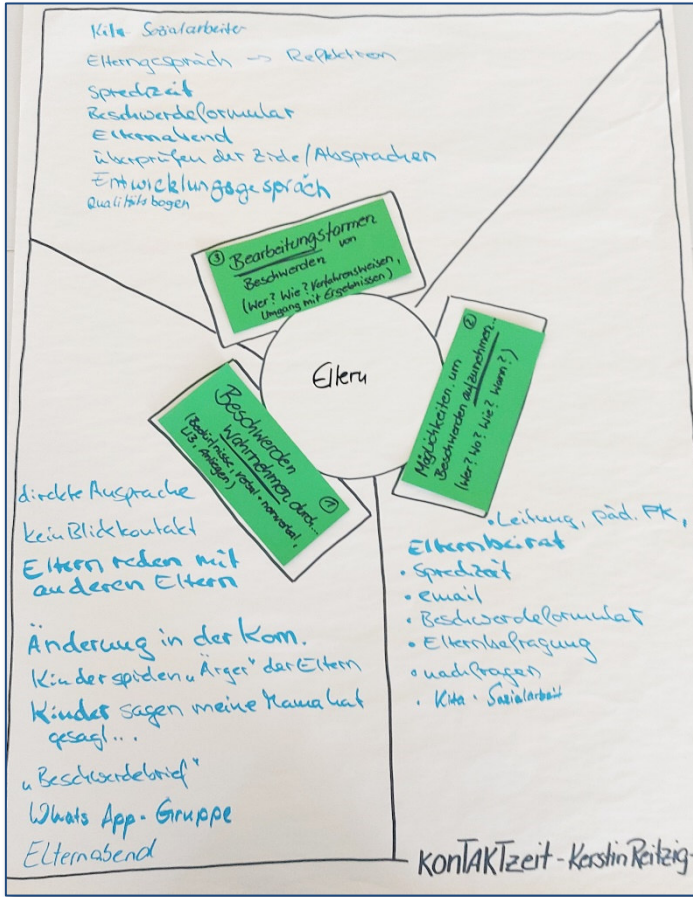 Kita-Sozialarbeiter
Elterngespräch -> Reflektion
Sprechzeit
Beschwerdeformular
Elternabend
überprüfen der Ziele/Absprachen
Entwicklungsgespräch
Qualitätsbogen
③ Bearbeitungsformen
von
Beschwerden
(Wer? Wie? Verfahrensweisen,
Umgang mit Ergebnissen)
Eltern
②
Möglichkeiten, um
Beschwerden aufzunehmen...
(Wer? Wo? Wie? Wann?)
Beschwerden
Wahrnehmen durch...
(Bedürfnisse, verbal + nonverbal,
Ü3, Anliegen)
①
direkte Ansprache
kein Blickkontakt
Eltern reden mit
anderen Eltern
Änderung in der Kom.
Kinder spielen „Ärger" der Eltern
Kinder sagen meine Mama hat
gesagt...
„Beschwerdebrief"
Whats App-Gruppe
Elternabend
• Leitung, päd. FK,
Elternbeirat
• Sprechzeit
• email
• Beschwerdeformular
• Elternbefragung
• nachfragen
• Kita-Sozialarbeit
konTAKTzeit - Kerstin Reitzig-